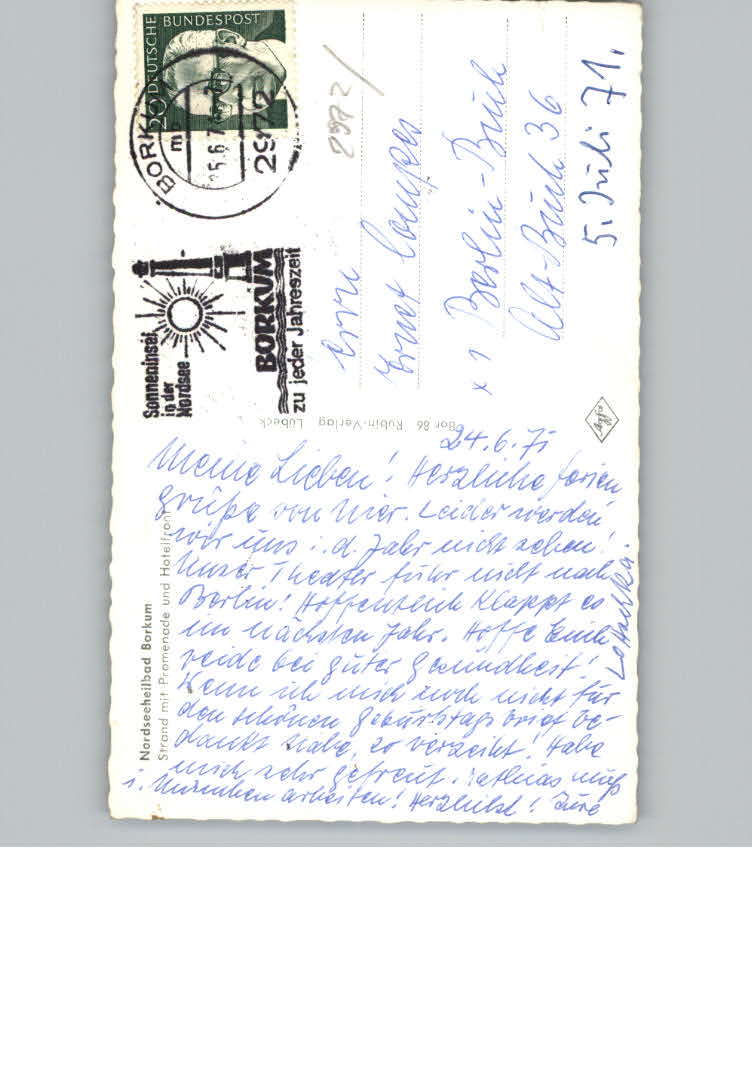 Nordseeheilbad Borkum
Strand mit Promenade und Hotelfront
24.6.71
Meine Lieben! Herzliche Ferien
grüße von hier. Leider werden
wir uns i. d. Jahr nicht sehen!
Unser Theater fuhr nicht nach
Berlin! Hoffentlich klappt es
im nächsten Jahr. Hoffe Euch
beide bei guter Gesundheit!
Wenn ich mich noch nicht für
den schönen Geburtstagsbrief be-
dankt habe, so verzeiht! Habe
mich sehr gefreut. Mathias muß
i. München arbeiten! Herzlichst! Eure
Bor 86 Rubin-Verlag Lübeck
Agfa
DEUTSCHE BUNDESPOST
20
BORKUM
2972
Sonneninsel
in der
Nordsee
BORKUM
zu jeder Jahreszeit
2972
Ernst
x 1 Berlin-Buch
Alt-Buch 36
5. Juli 71.